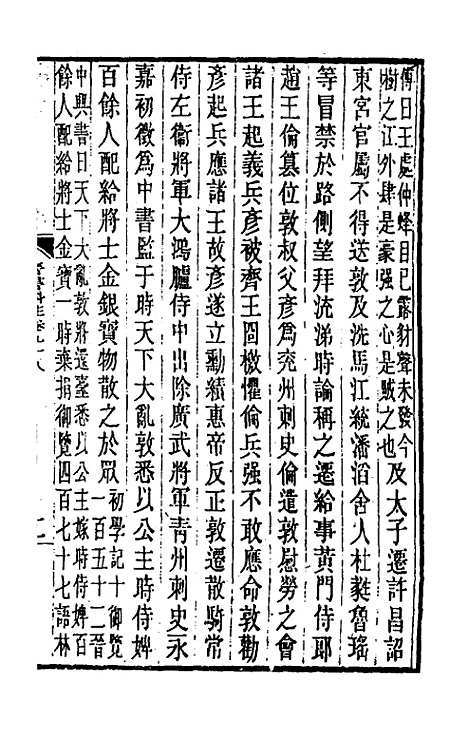 傅曰王處仲蜂目已露豺聲未發今
樹之江外肆是豪强之心是賊之也及太子遷許昌詔
東宮官屬不得送敦及洗馬江統潘滔舍人杜蕤魯瑤
等冒禁於路側望拜流涕時論稱之遷給事黃門侍郎
趙王倫篡位敦叔父彥爲兖州刺史倫遣敦慰勞之會
諸王起義兵彥被齊王冏檄懼倫兵强不敢應命敦勸
彥起兵應諸王故彥遂立勳績惠帝反正敦遷散騎常
侍左衞將軍大鴻臚侍中出除廣武將軍青州刺史永
嘉初徵爲中書監于時天下大亂敦悉以公主時侍婢
百餘人配給將士金銀寶物散之於眾初學記十御覽
一百五十二晉
中興書曰天下大亂敦將還臺悉以公主嫁時侍婢百
餘人配給將士金寶一時棄捐御覽四百七十七語林
晉書斠注卷九十八